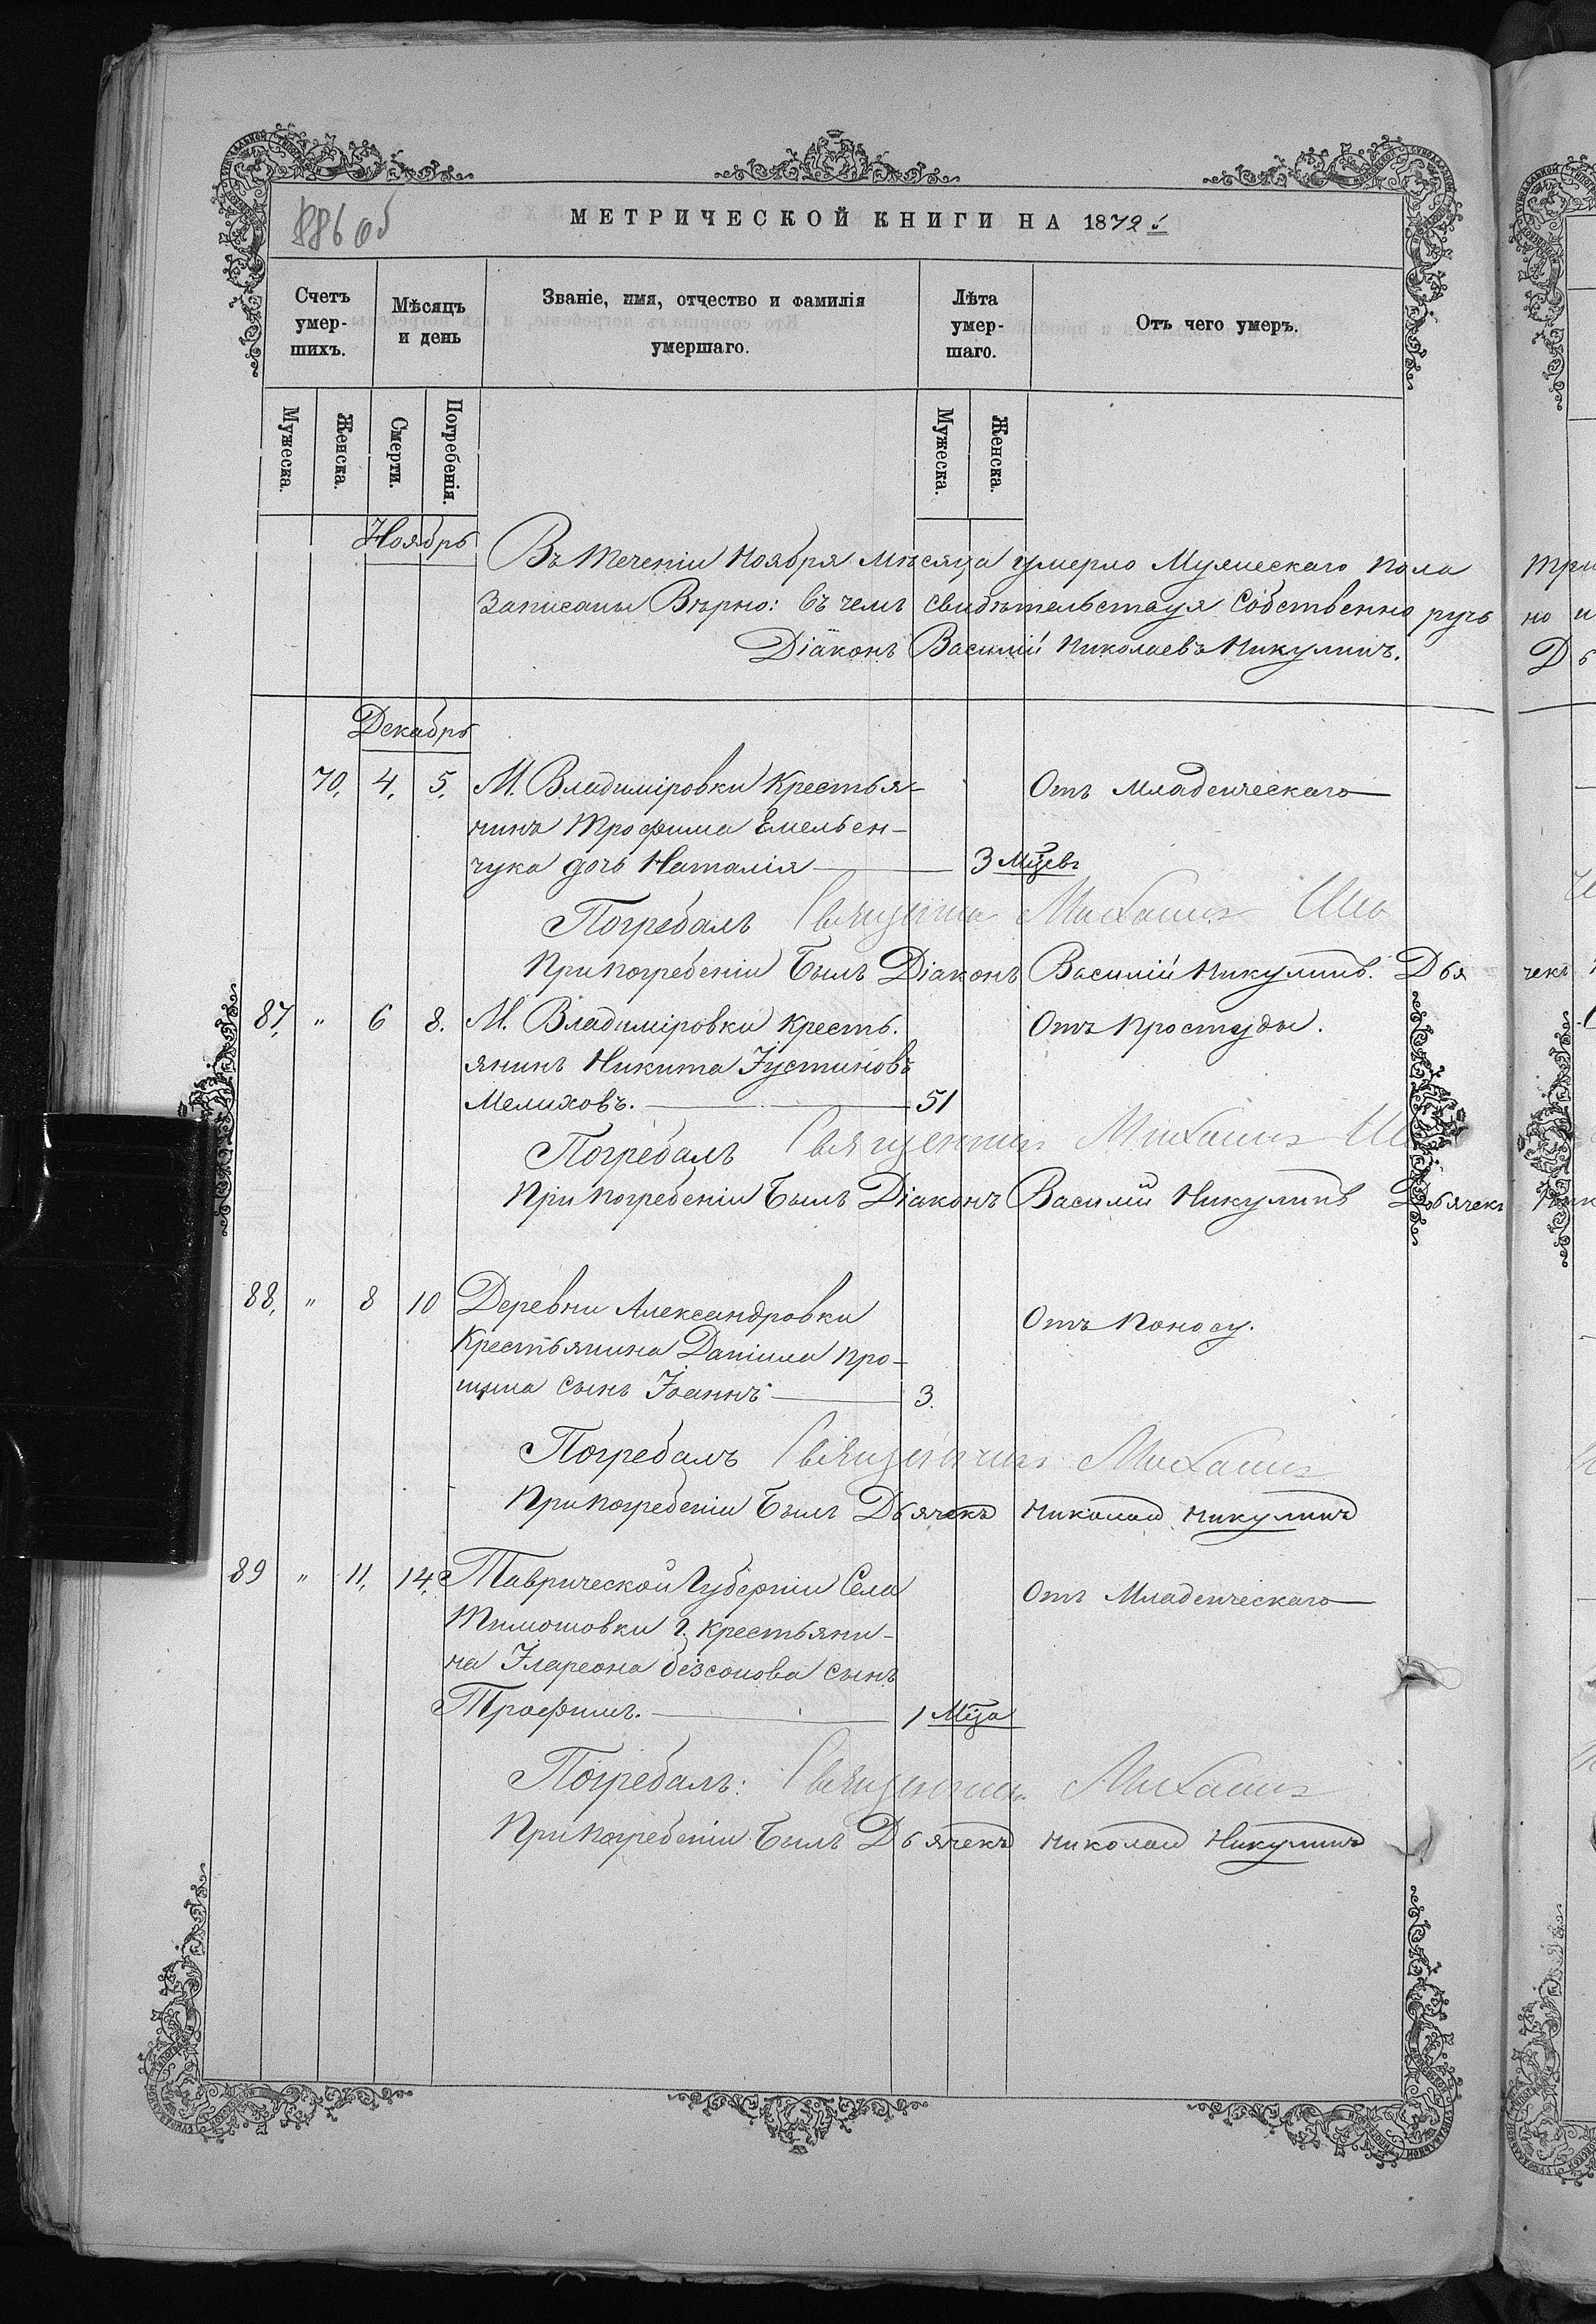 88 об
МЕТРИЧЕСКОЙ КНИГИ НА 1872 г.
Счетъ умер-шихъ.
Мѣсяцъ и день
Званіе, имя, отчество и фамилія умершаго.
Лѣта умер-шаго.
Отъ чего умеръ.
Мужеска.
Женска.
Смерти.
Погребенія.
Мужеска.
Женска.
Ноябрь
Въ теченіи Ноября мѣсяца умерло Мужескаго пола
Записаны Вѣрно: въ чемъ свидѣтельствуя Собственно ручь
Діаконъ Василій Николаевъ Никулинъ.
Декабрь
70. 4. 5. М. Владиміровки Крестья- Отъ Младенческаго
нинъ Трофима Емельен-
чука дочь Наталія 3 мцевъ
Погребалъ Священникъ Михаилъ
При погребеніи Былъ Діаконъ Василій Никулинъ. Дья
87. " 6 8. М. Владиміровки Кресть. Отъ Простуды.
янинъ Никита Іустиновъ
Мелиховъ. 51
Погребалъ Священникъ Михаилъ
При погребеніи Былъ Діаконъ Василій Никулинъ Дьячекъ
88. " 8 10 Деревни Александровки Отъ Поносу.
Крестьянина Даніила Про-
сынъ Іоаннъ 3.
Погребалъ Священникъ Михаилъ
При погребеніи Былъ Дьячекъ Николай Никулинъ
89 " 11. 14. Таврической Губерніи Села Отъ Младенческаго
Тимошовки г. крестьяни-
на Илареона Безсонова сынъ
Трофимъ. 1 Мца
Погребалъ: Священникъ Михаилъ
При погребеніи Былъ Дьячекъ Николай Никулинъ